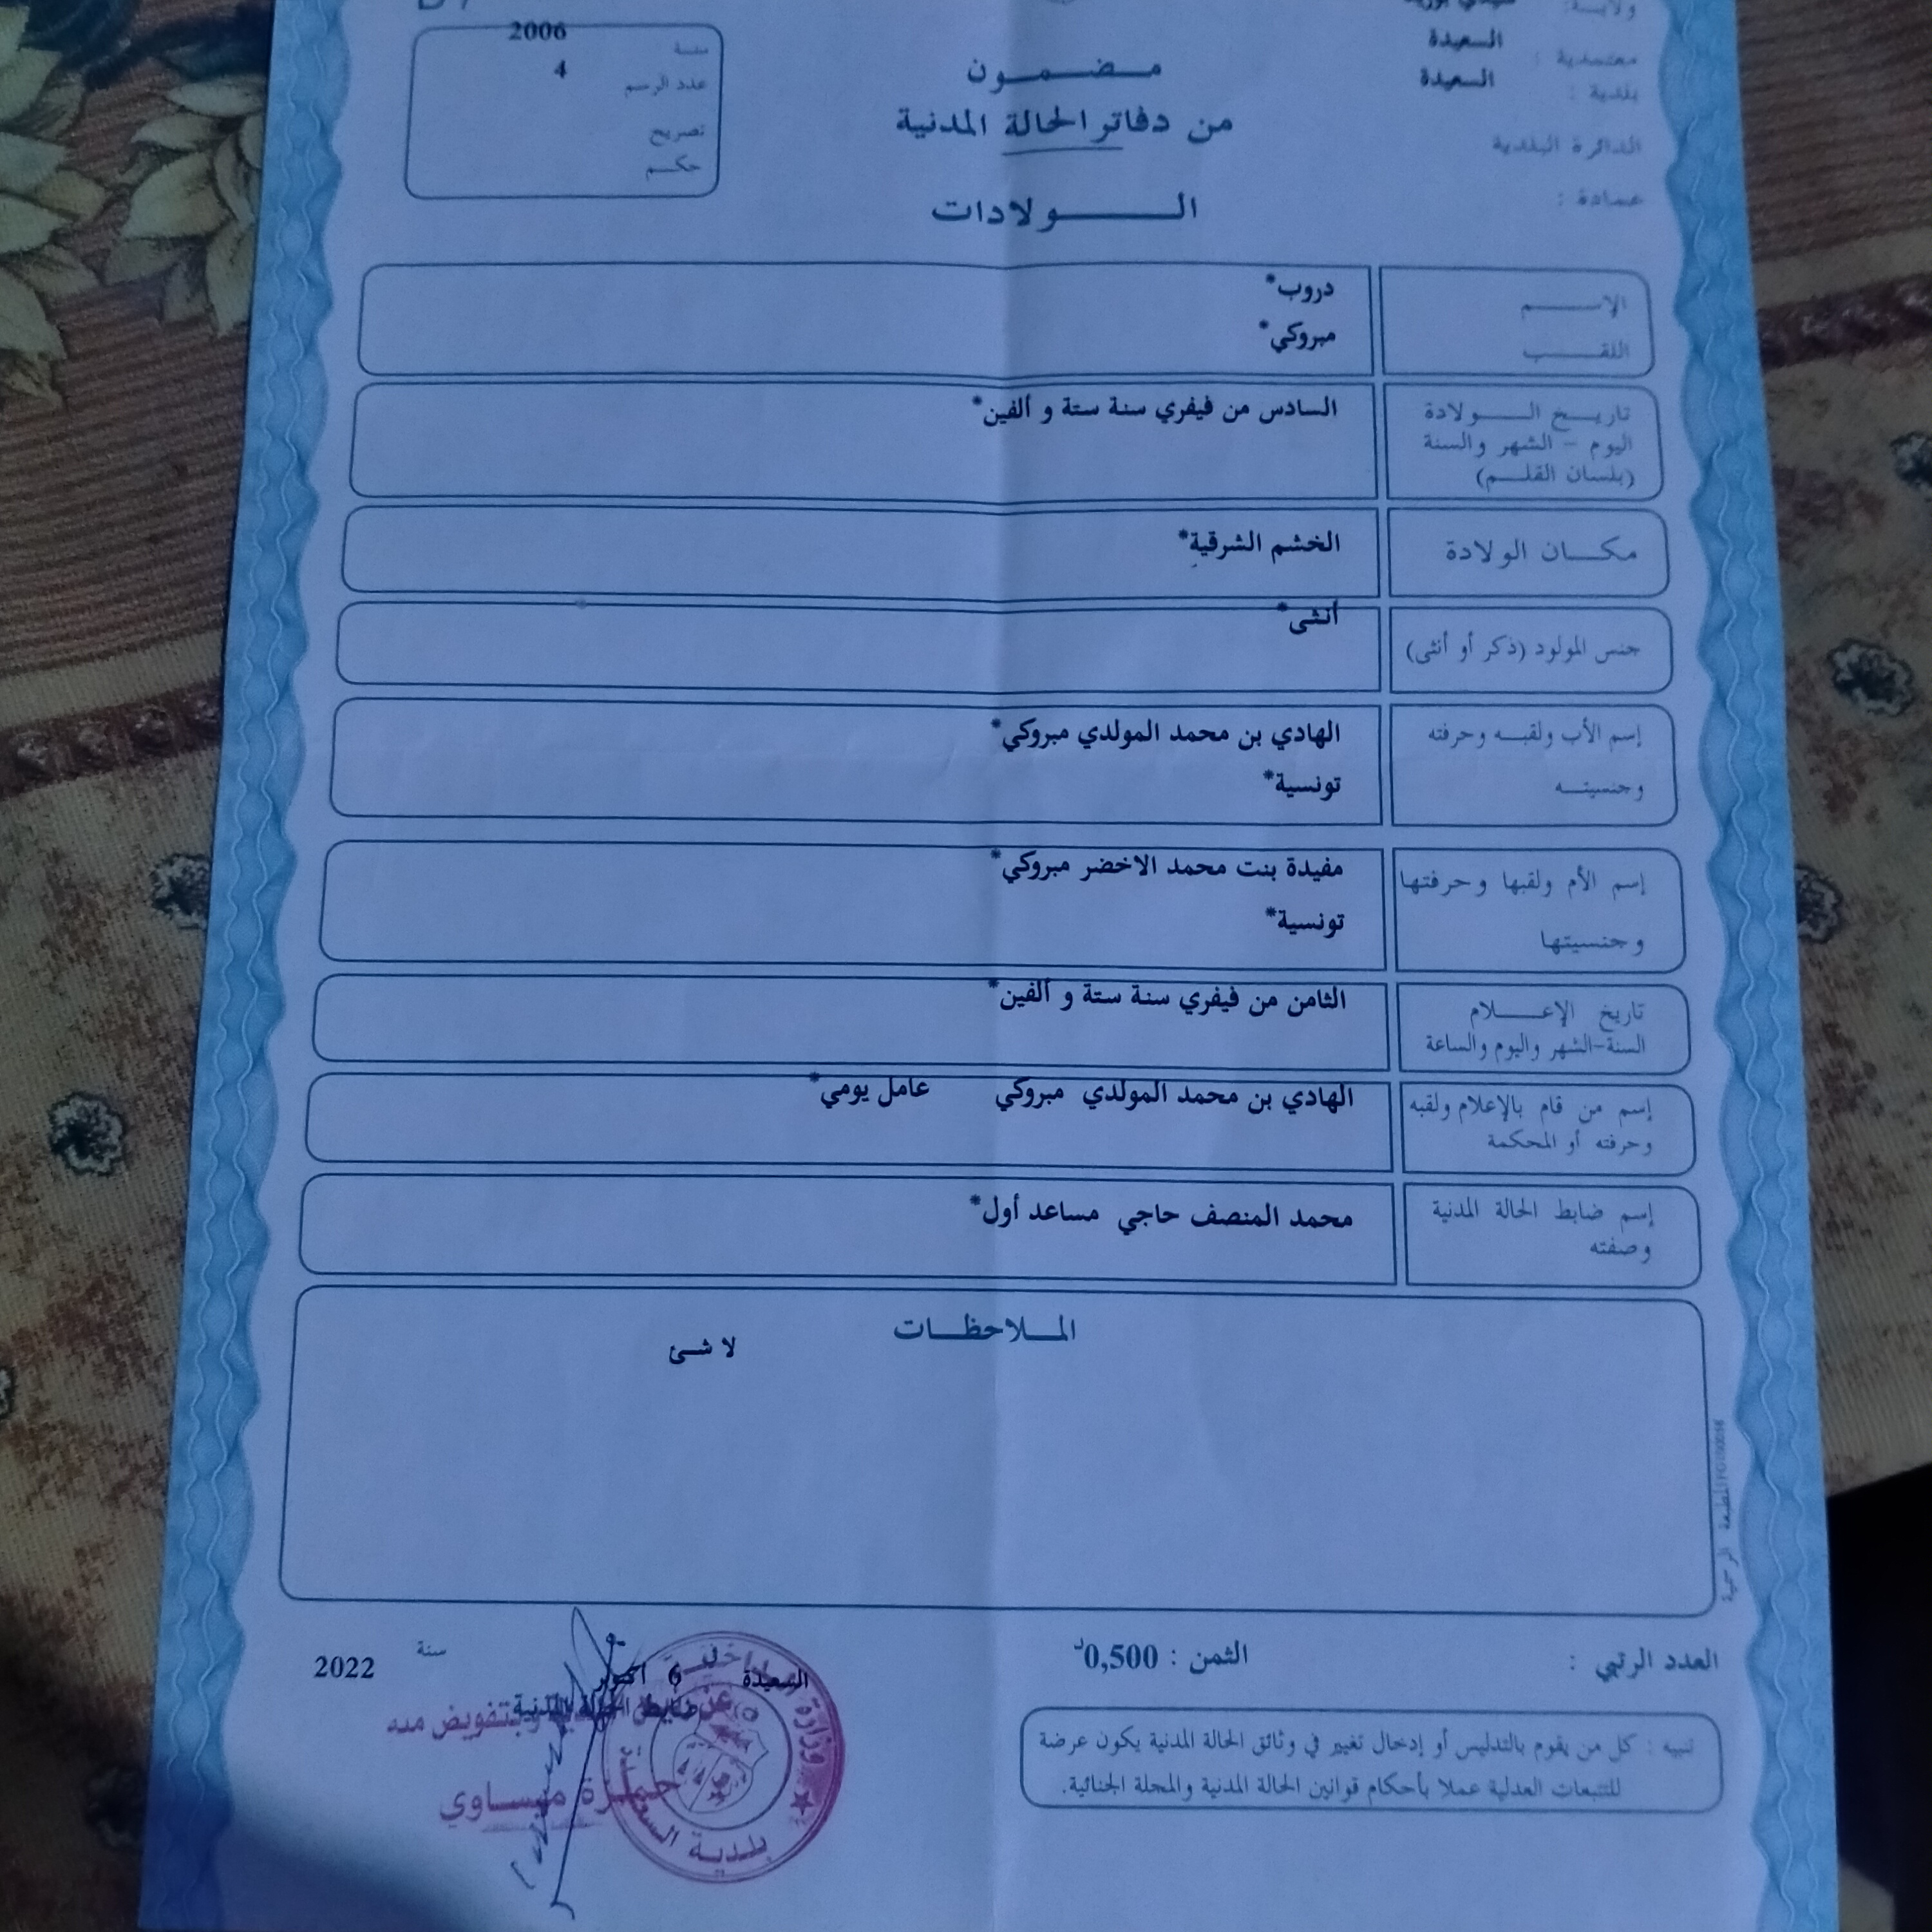 ولاية: سيدي بوزيد
معتمدية : السعيدة
بلدية : السعيدة
الدائرة البلدية
عمادة :
مضمون
من دفاتر الحالة المدنية
الولادات
سنة 2006
عدد الرسم 4
تصريح
حكم
الإسم دروب*
اللقب مبروكي*
تاريخ الولادة السادس من فيفري سنة ستة و ألفين*
اليوم - الشهر والسنة
(بلسان القلم)
مكان الولادة الخشم الشرقية*
جنس المولود (ذكر أو أنثى) أنثى*
إسم الأب ولقبه وحرفته الهادي بن محمد المولدي مبروكي*
وجنسيته تونسية*
إسم الأم ولقبها وحرفتها مفيدة بنت محمد الاخضر مبروكي*
وجنسيتها تونسية*
تاريخ الإعلام الثامن من فيفري سنة ستة و ألفين*
السنة-الشهر واليوم والساعة
إسم من قام بالإعلام ولقبه الهادي بن محمد المولدي مبروكي عامل يومي*
وحرفته أو المحكمة
إسم ضابط الحالة المدنية محمد المنصف حاجي مساعد أول*
وصفته
الملاحظات
لا شئ
العدد الرتبي :
الثمن : 0,500د
السعيدة 6 اكتوبر سنة 2022
ضابط الحالة المدنية
وبتفويض منه
حمزة عيساوي
بلدية السعيدة
تنبيه : كل من يقوم بالتدليس أو إدخال تغيير في وثائق الحالة المدنية يكون عرضة
للتتبعات العدلية عملا بأحكام قوانين الحالة المدنية والمجلة الجنائية.
المطبعة الرسمية